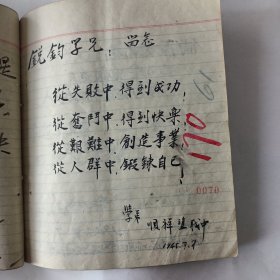 銳鈞學兄：留念
從失敗中，得到成功，
從奮鬥中，得到快樂，
從艱難中，創造事業，
從人羣中，鍛鍊自己。
170
0070
學弟
順祥
1965.7.9